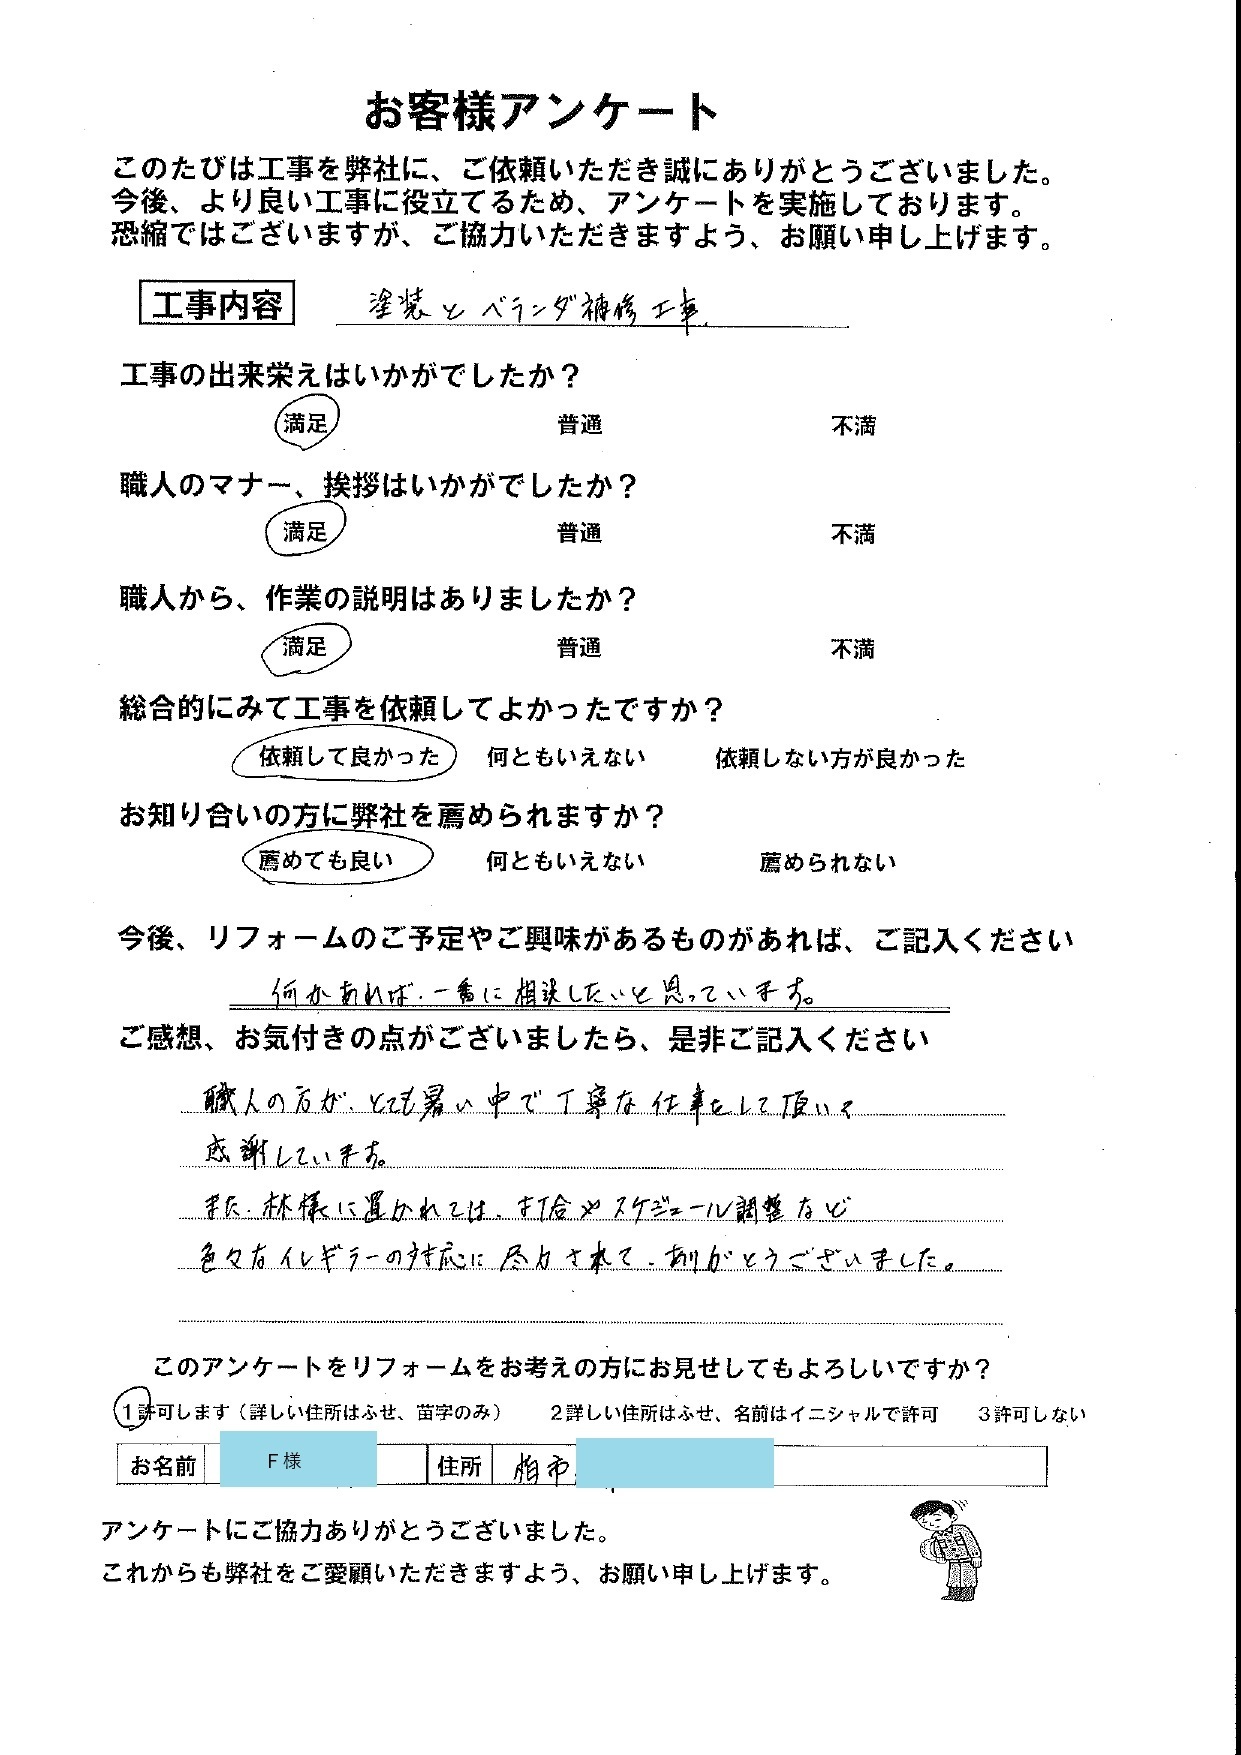 お客様アンケート
このたびは工事を弊社に、ご依頼いただき誠にありがとうございました。
今後、より良い工事に役立てるため、アンケートを実施しております。
恐縮ではございますが、ご協力いただきますよう、お願い申し上げます。
工事内容 塗装とベランダ補修工事
工事の出来栄えはいかがでしたか？
満足 普通 不満
職人のマナー、挨拶はいかがでしたか？
満足 普通 不満
職人から、作業の説明はありましたか？
満足 普通 不満
総合的にみて工事を依頼してよかったですか？
依頼して良かった 何ともいえない 依頼しない方が良かった
お知り合いの方に弊社を薦められますか？
薦めても良い 何ともいえない 薦められない
今後、リフォームのご予定やご興味があるものがあれば、ご記入ください
何かあれば、一番に相談したいと思っています。
ご感想、お気付きの点がございましたら、是非ご記入ください
職人の方が、とても暑い中で丁寧な仕事をして頂いて
感謝しています。
また、林様に置かれては、打合やスケジュール調整など
色々なイレギラーの対応に尽力されて、ありがとうございました。
このアンケートをリフォームをお考えの方にお見せしてもよろしいですか？
1許可します（詳しい住所はふせ、苗字のみ） 2詳しい住所はふせ、名前はイニシャルで許可 3許可しない
お名前 F様 住所 柏市
アンケートにご協力ありがとうございました。
これからも弊社をご愛顧いただきますよう、お願い申し上げます。